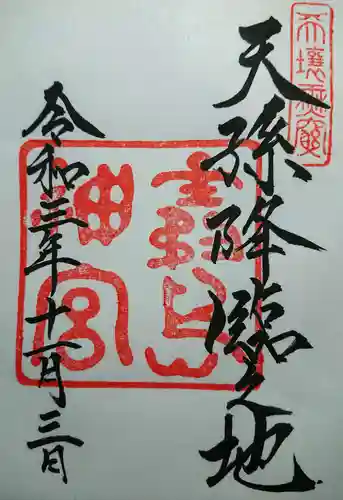 天孫降臨之地
令和三年十一月三日
天壌無窮
霧島
神宮